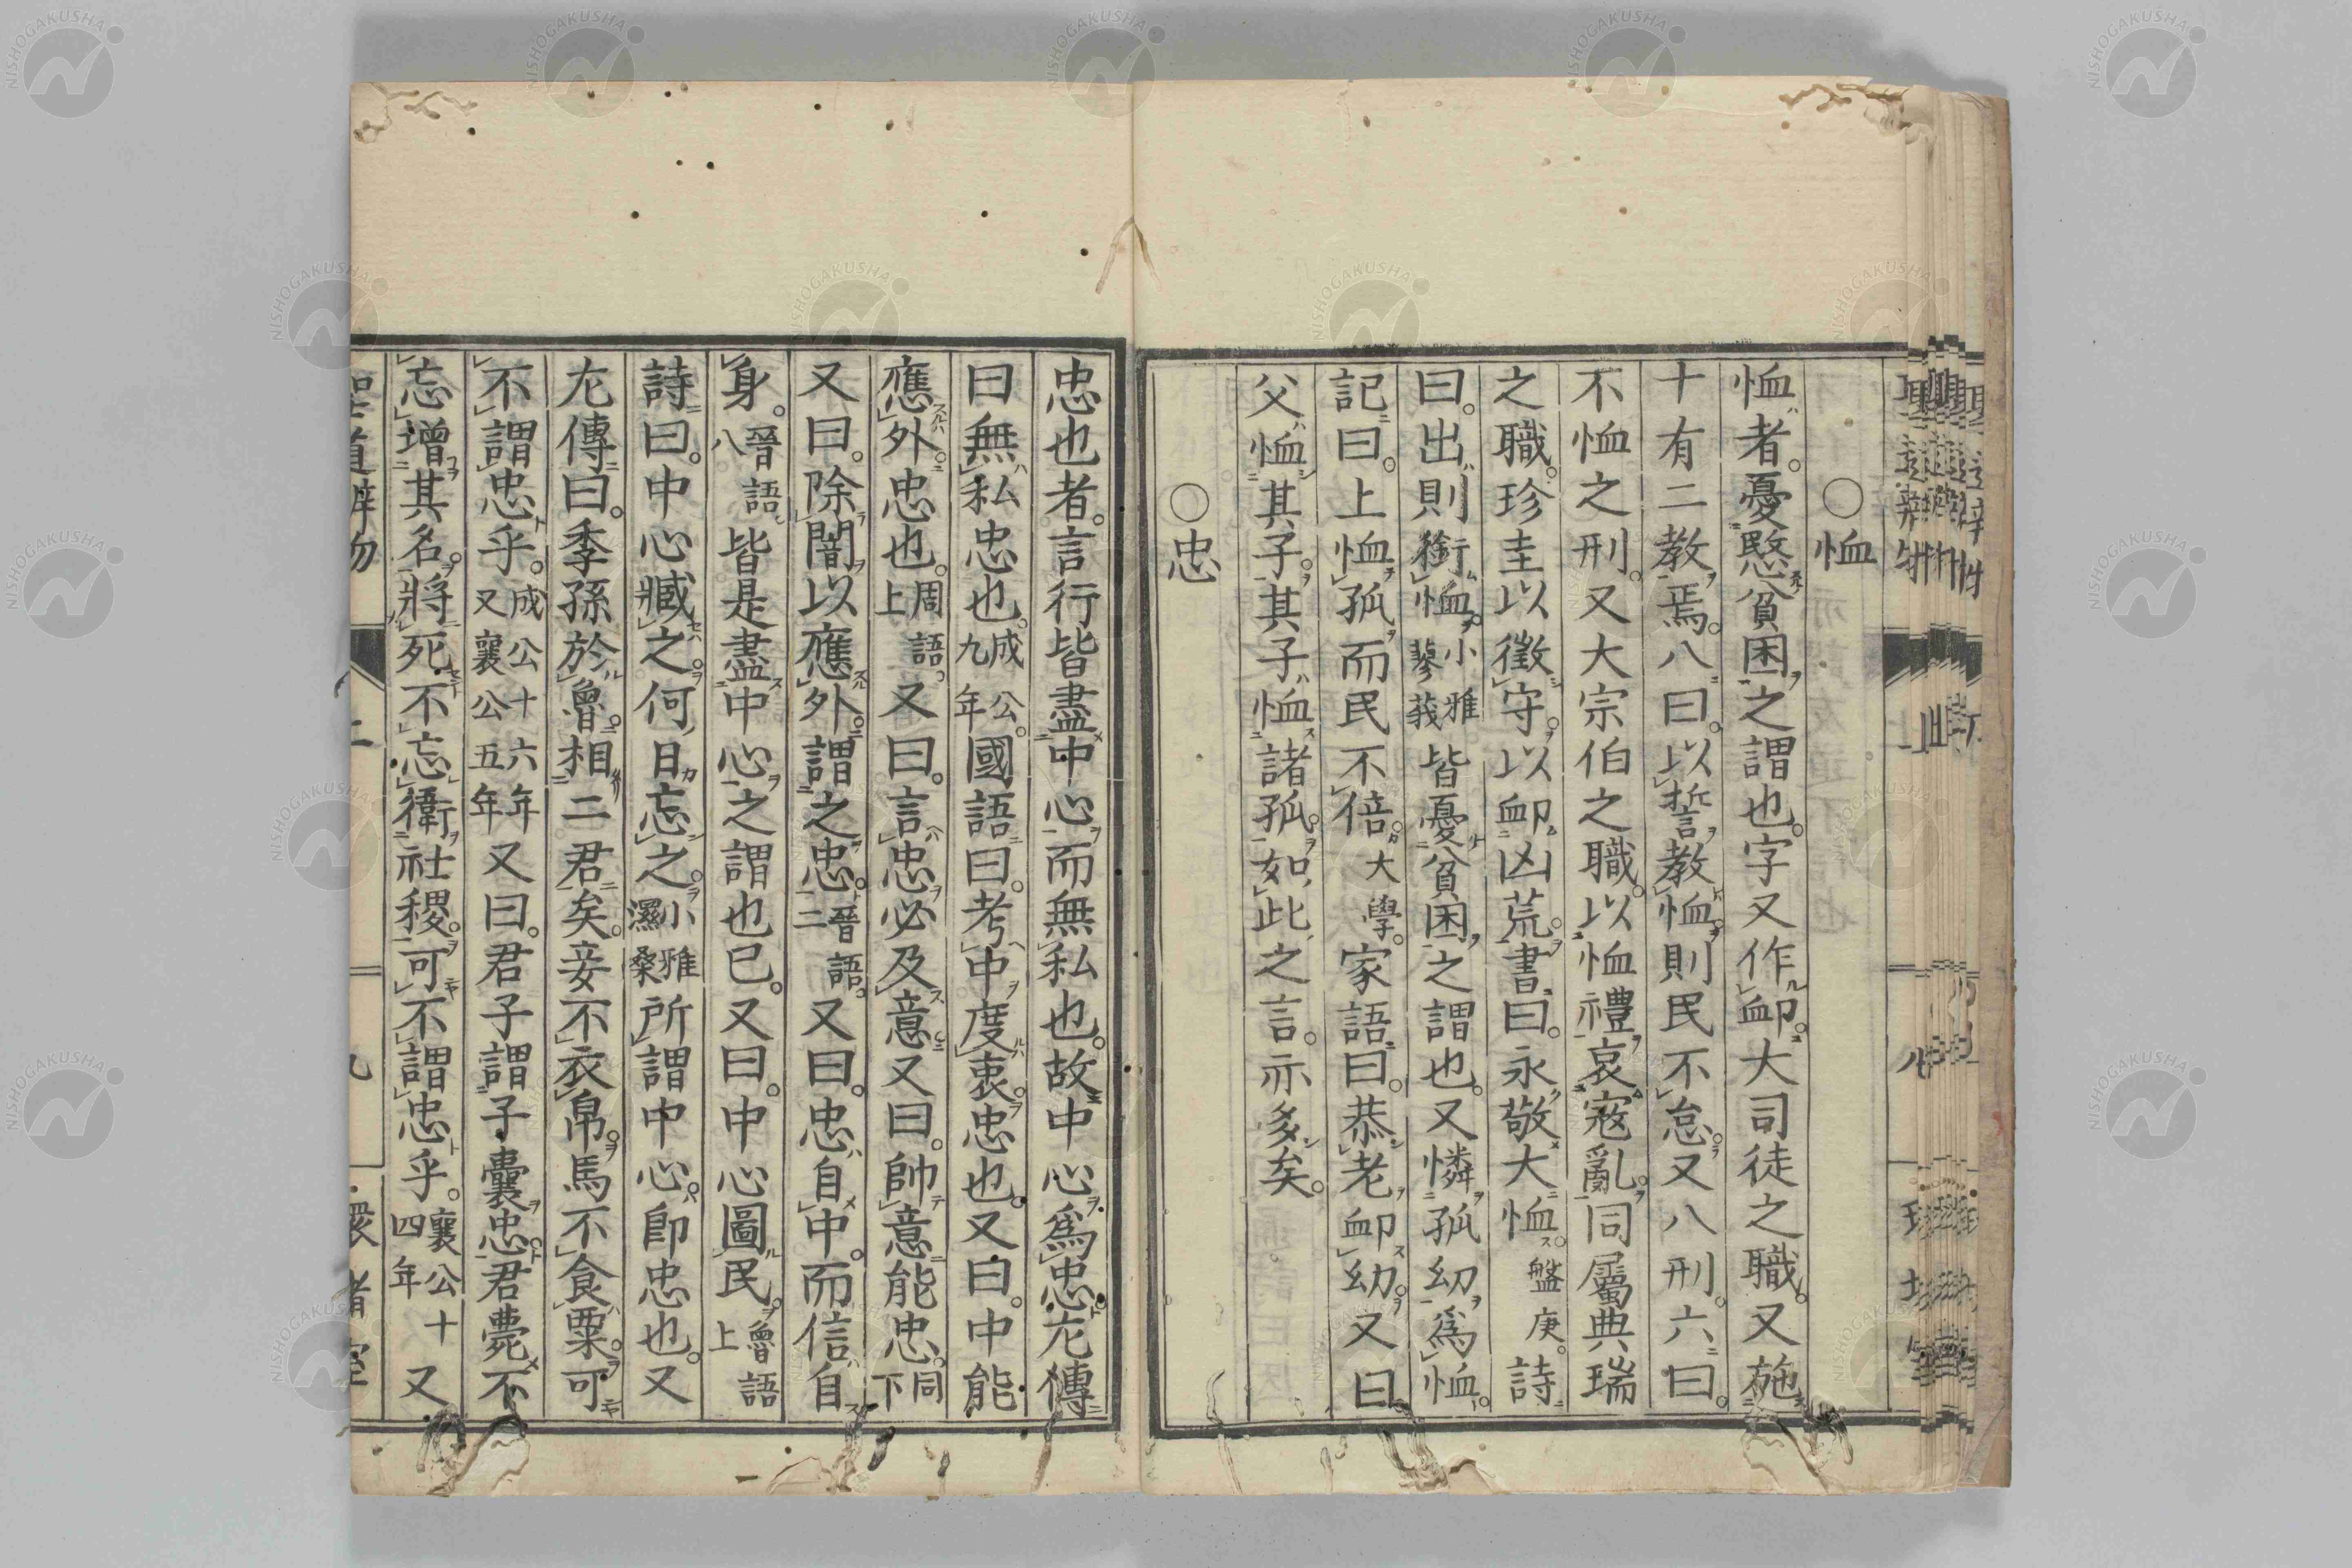 ○恤
恤者。憂愍貧困之謂也。字又作卹。大司徒之職。又施
十有二教焉。八曰。以誓教恤。則民不怠。又八刑。六曰。
不恤之刑。又大宗伯之職。以恤禮哀寇亂。同屬典瑞
之職。珍圭以徵守。以卹凶荒。書曰。永敬大恤。盤庚。詩
曰。出則銜恤。小雅蓼莪皆憂貧困之謂也。又憐孤幼爲恤。
記曰。上恤孤而民不倍。大學。家語曰。恭老卹幼。又曰。
父恤其子。其子恤諸孤。如此之言。亦多矣。
○忠
忠也者。言行皆盡中心而無私也。故中心爲忠。左傳
曰無私忠也。成公九年。國語曰。考中度衷。忠也。又曰。中能
應外。忠也。周語上。又曰。言忠必及意。又曰。帥意能忠。同下
又曰。除闇以應外。謂之忠。晉語二。又曰。忠自中。而信自
身。晉語八皆是盡中心之謂也已。又曰。中心圖民。魯語上
詩曰。中心臧之。何日忘之。小雅隰桑所謂中心。卽忠也。又
左傳曰。季孫於魯。相二君矣。妾不衣帛。馬不食粟。可
不謂忠乎。成公十六年又襄公五年又曰。君子謂子囊忠。君薨不
忘增其名。將死不忘衞社稷。可不謂忠乎。襄公十四年又
NISHOGAKUSHA